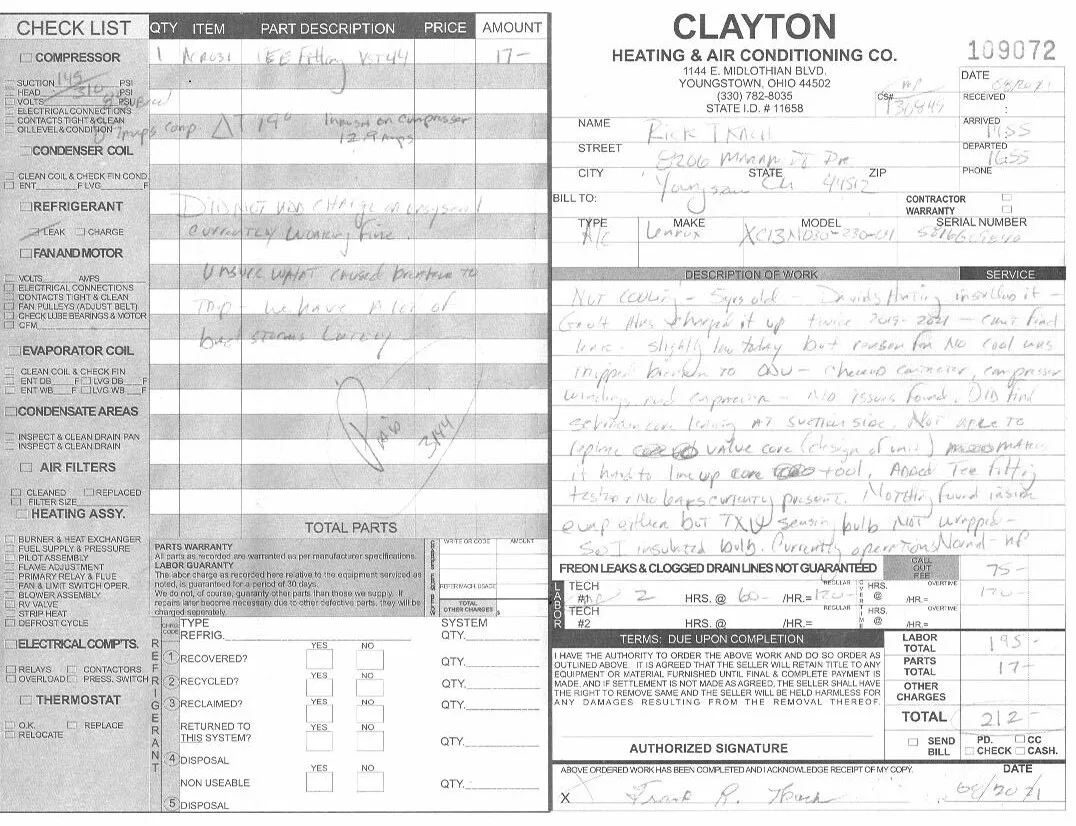 CHECK LIST
QTY ITEM PART DESCRIPTION PRICE AMOUNT
1 TEE Fitting VST44 17-
COMPRESSOR
SUCTION 145 PSI
HEAD 310 PSI
VOLTS
ELECTRICAL CONNECTIONS
CONTACTS TIGHT & CLEAN
OIL LEVEL & CONDITION
comp. ΔT 19° Inrush on compressor
12.9 Amps
CONDENSER COIL
CLEAN COIL & CHECK FIN COND
ENT F LVG F
REFRIGERANT
LEAK CHARGE
DID NOT ADD CHARGE
Currently working Fine.
FAN AND MOTOR
VOLTS AMPS
ELECTRICAL CONNECTIONS
CONTACTS TIGHT & CLEAN
FAN PULLEYS (ADJUST BELT)
CHECK LUBE BEARINGS & MOTOR
CFM
UNSURE WHAT caused breaker to
Trip - we have A lot of
bad storms Lately
EVAPORATOR COIL
CLEAN COIL & CHECK FIN
ENT DB F LVG DB F
ENT WB F LVG WB F
CONDENSATE AREAS
INSPECT & CLEAN DRAIN PAN
INSPECT & CLEAN DRAIN
Paid
AIR FILTERS
CLEANED REPLACED
FILTER SIZE
HEATING ASSY.
BURNER & HEAT EXCHANGER
FUEL SUPPLY & PRESSURE
PILOT ASSEMBLY
FLAME ADJUSTMENT
PRIMARY RELAY & FLUE
FAN & LIMIT SWITCH OPER.
BLOWER ASSEMBLY
RV VALVE
STRIP HEAT
DEFROST CYCLE
ELECTRICAL COMPTS.
RELAYS CONTACTORS
OVERLOAD PRESS. SWITCH
THERMOSTAT
O.K. REPLACE
RELOCATE
TOTAL PARTS
PARTS WARRANTY
All parts as recorded are warranted as per manufacturer specifications.
LABOR GUARANTY
The labor charge as recorded here relative to the equipment serviced as
noted, is guaranteed for a period of 30 days.
We do not, of course, guaranty other parts than those we supply. If
repairs later become necessary due to other defective parts, they will be
charged seperately.
WRITE OR CODE AMOUNT
TOTAL
OTHER CHARGES $
CHRG. CODE
TYPE
REFRIG.
SYSTEM
QTY.
REFRIGERANT
1 RECOVERED? YES NO QTY.
2 RECYCLED? YES NO QTY.
3 RECLAIMED? YES NO QTY.
RETURNED TO
THIS SYSTEM? YES NO QTY.
4 DISPOSAL
NON USEABLE YES NO QTY.
5 DISPOSAL
CLAYTON
HEATING & AIR CONDITIONING CO.
1144 E. MIDLOTHIAN BLVD.
YOUNGSTOWN, OHIO 44502
(330) 782-8035
STATE I.D. # 11658
109072
CS#
DATE
RECEIVED
NAME Rick
ARRIVED
STREET 8206 Dr
DEPARTED 16:55
CITY STATE ZIP PHONE
Oh 44512
BILL TO:
CONTRACTOR
WARRANTY
TYPE MAKE MODEL SERIAL NUMBER
A/C Lennox
DESCRIPTION OF WORK SERVICE
Not cooling - 5yrs old - Davids Heating installed it -
Has charged it up twice 2019-2021 - can't find
leak. Slightly low today but reason for no cool was
tripped breaker to ODU - checked contactor, compressor
windings and - NO issues found. DID find
leaking AT suction side. Not able to
replace valve core (design of unit) makes
it hard to line up core tool. Added Tee fitting
tested NO leaks currently present. Nothing found inside
evap either but TXV sensing bulb NOT wrapped -
So I insulated bulb. Currently operations Normal -
FREON LEAKS & CLOGGED DRAIN LINES NOT GUARANTEED
CALL OUT FEE 75-
LABOR
TECH #1 2 HRS. @ 60- /HR.= 120- REGULAR HRS. @ OVERTIME 120-
TECH #2 HRS. @ /HR.= REGULAR HRS. @ OVERTIME
TERMS: DUE UPON COMPLETION
I HAVE THE AUTHORITY TO ORDER THE ABOVE WORK AND DO SO ORDER AS
OUTLINED ABOVE. IT IS AGREED THAT THE SELLER WILL RETAIN TITLE TO ANY
EQUIPMENT OR MATERIAL FURNISHED UNTIL FINAL & COMPLETE PAYMENT IS
MADE, AND IF SETTLEMENT IS NOT MADE AS AGREED, THE SELLER SHALL HAVE
THE RIGHT TO REMOVE SAME AND THE SELLER WILL BE HELD HARMLESS FOR
ANY DAMAGES RESULTING FROM THE REMOVAL THEREOF.
LABOR TOTAL 195-
PARTS TOTAL 17-
OTHER CHARGES
TOTAL 212-
AUTHORIZED SIGNATURE
SEND BILL PD. CC CHECK CASH.
ABOVE ORDERED WORK HAS BEEN COMPLETED AND I ACKNOWLEDGE RECEIPT OF MY COPY. DATE
X Frank R.